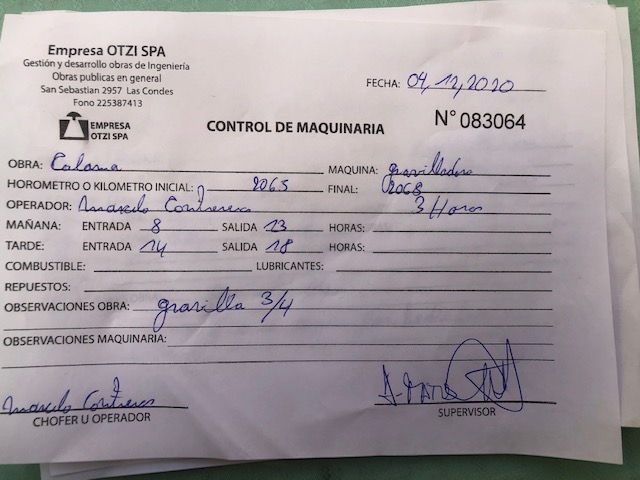 Empresa OTZI SPA
Gestión y desarrollo obras de Ingeniería
Obras publicas en general
San Sebastian 2957 Las Condes
Fono 225387413
FECHA: 04,12,2020
EMPRESA
OTZI SPA
CONTROL DE MAQUINARIA
N° 083064
OBRA: MAQUINA:
HOROMETRO O KILOMETRO INICIAL: 2065 FINAL: 2068
OPERADOR: 3 Horas
MAÑANA: ENTRADA 8 SALIDA 13 HORAS:
TARDE: ENTRADA 14 SALIDA 18 HORAS:
COMBUSTIBLE: LUBRICANTES:
REPUESTOS:
OBSERVACIONES OBRA: gravilla 3/4
OBSERVACIONES MAQUINARIA:
CHOFER U OPERADOR
SUPERVISOR